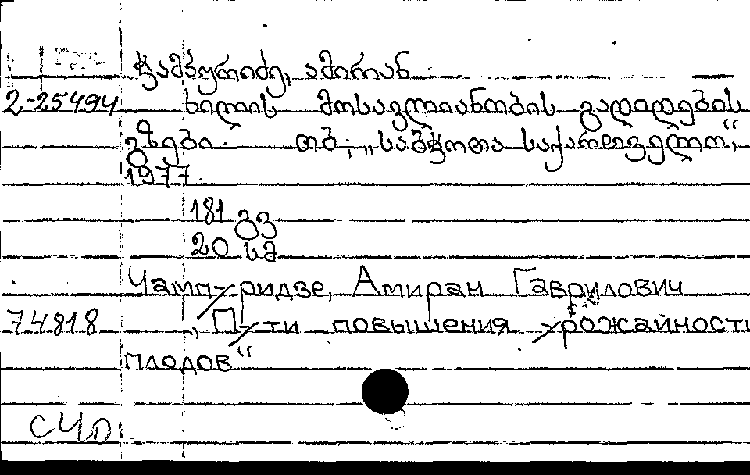 ჭამპურიძე, ამირან
2-25494 ხილის მოსავლიანობის გადიდების
გზები. თბ., „საბჭოთა საქართველო",
1977.
181 გვ
20 სმ
Чампуридзе, Амиран Гаврилович
74818 „Пути повышения урожайности
плодов"